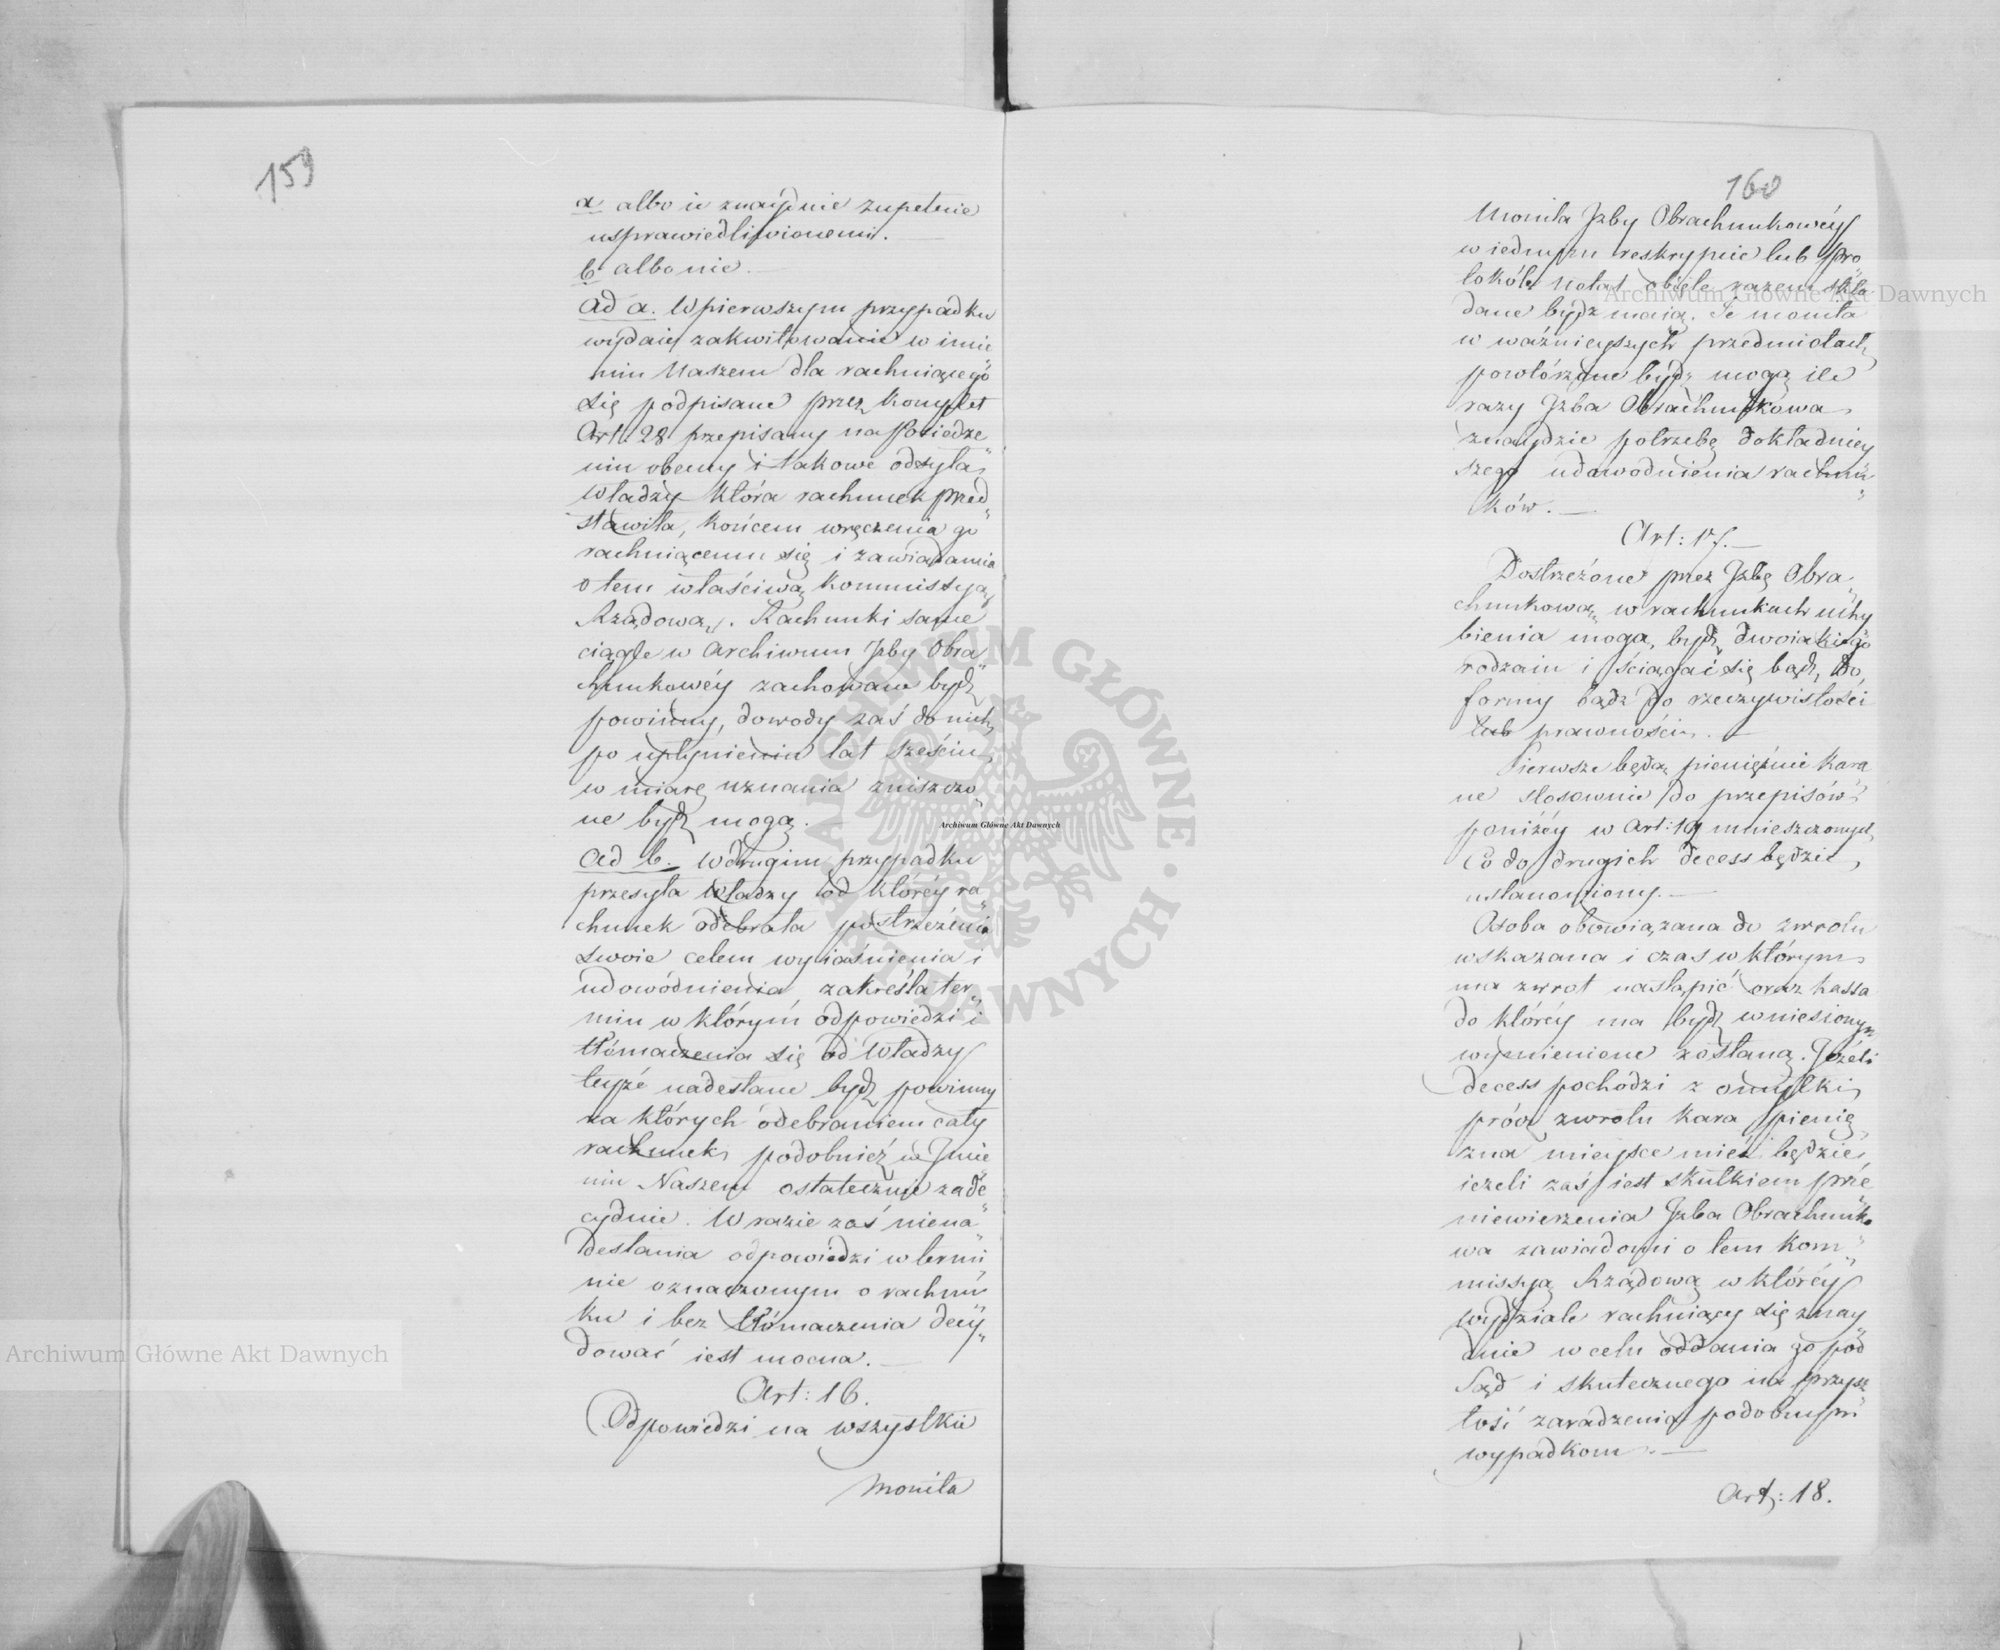 159
a albo ie znayduie zupełnie
usprawiedliwionemi. —
b albo nie. —
ad a. W pierwszym przypadku
wydaie zakwitowanie w imie„
niu Naszem dla rachuiącego
się podpisane przez komplet
Art: 28 przepisany na posiedze„
niu obecny i takowe odsyła
Władzy która rachunek przed„
stawiła, końcem wręczenia go
rachuiącemu się i zawiadamia
o tem właściwą Kommissyą
Rządową. Rachunki same
ciągle w Archiwum Jzby Obra„
chunkowéy zachowane bydź
powinny, dowody zaś do nich
po upłynieniu lat sześciu,
w miarę uznania zniszczo„
ne bydź mogą. —
ad b. W drugim przypadku
przesyła Władzy od któréy ra„
chunek odebrała postrzeżenia
swoie celem wyiaśnienia i
udowodnienia zakreśla ter„
min w którym odpowiedzi i
tłómaczenia się od Władzy
teyże nadesłane bydź powinny
za których odebraniem cały
rachunek podobnież w Jmie„
niu Naszem ostatecznie zade„
cyduie. W razie zaś niena„
desłania odpowiedzi w termi„
nie oznaczonym o rachun„
ku i bez tłómaczenia decy„
dować iest mocna. —
Art: 16.
Odpowiedzi na wszystkie
monita
160
Monita Jzby Obrachunkowéy
w iednym reskrypcie lub pro„
tokóle Notat obięte razem skła„
dane bydź maią. Te monita
w ważnieyszych przedmiotach
powtórzone bydź mogą ile
razy Jzba Obrachunkowa
znaydzie potrzebę dokładniey„
szego udowodnienia rachun„
ków. —
Art: 17. —
Dostrzeżone przez Jzbę Obra„
chunkową w rachunkach uchy„
bienia mogą bydź dwoiakiego
rodzaiu i ściągać się bądź do
formy bądź do rzeczywistości
lub prawności. —
Pierwsze będą pieniężnie kara„
ne stosownie do przepisów
poniżéy w Art: 19 umieszczonych,
Co do drugich decess będzie
ustanowiony. —
Osoba obowiązana do zwrotu
wskazana i czas w którym
ma zwrot nastąpić oraz Kassa
do któréy ma bydź wniesionym
wymienione zostaną. Jeżeli
decess pochodzi z omyłki
prócz zwrotu kara pienię„
żna mieysce mieć będzie,
ieżeli zaś iest skutkiem prze„
niewierzenia Jzba Obrachunko„
wa zawiadomi o tem Kom„
missyą Rządową w któréy
wydziale rachuiący się znay„
duie w celu oddania go pod
Sąd i skutecznego na przysz„
łość zaradzenia podobnym
wypadkom. —
Art: 18.
Archiwum Główne Akt Dawnych
Archiwum Główne Akt Dawnych
Archiwum Główne Akt Dawnych
ARCHIWUM GŁÓWNE AKT DAWNYCH